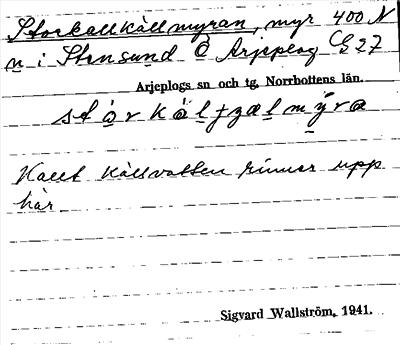 Storkallkällmyran, myr 400 N
n i Stensund Ö Arjeplog C§ 27
Arjeplogs sn och tg, Norrbottens län.
Kallt källvatten rinner upp
här
Sigvard Wallström, 1941.